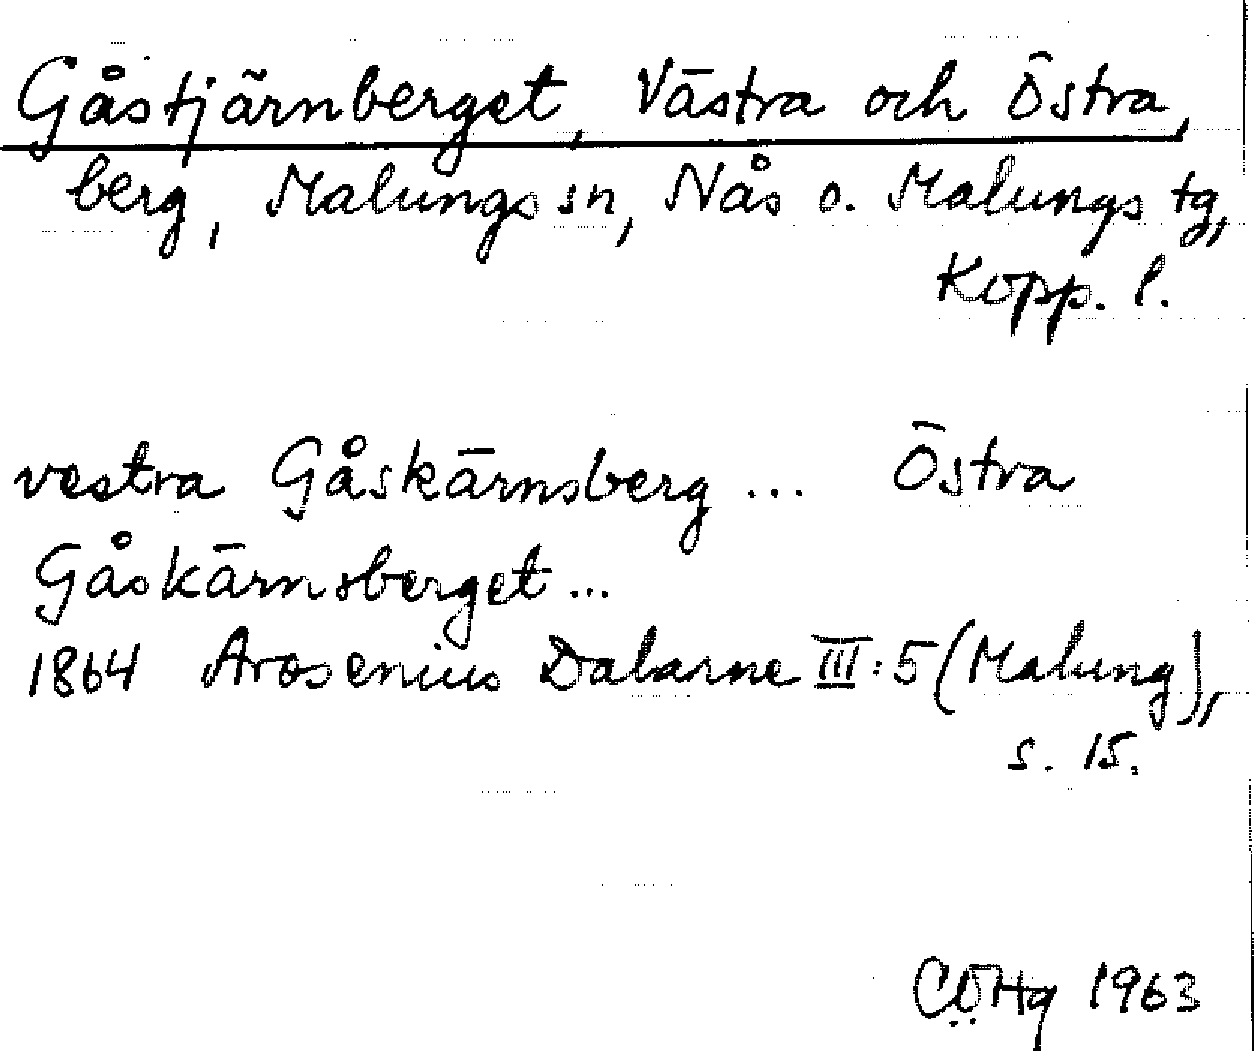 Gåstjärnberget, Västra och Östra,
berg, Malungs sn, Nås o. Malungs tg,
Kopp. l.
vestra Gåskärnsberg ... Östra
Gåskärnsberget ...
1864 Arosenius Dalarne III:5 (Malung),
s. 15.
1963